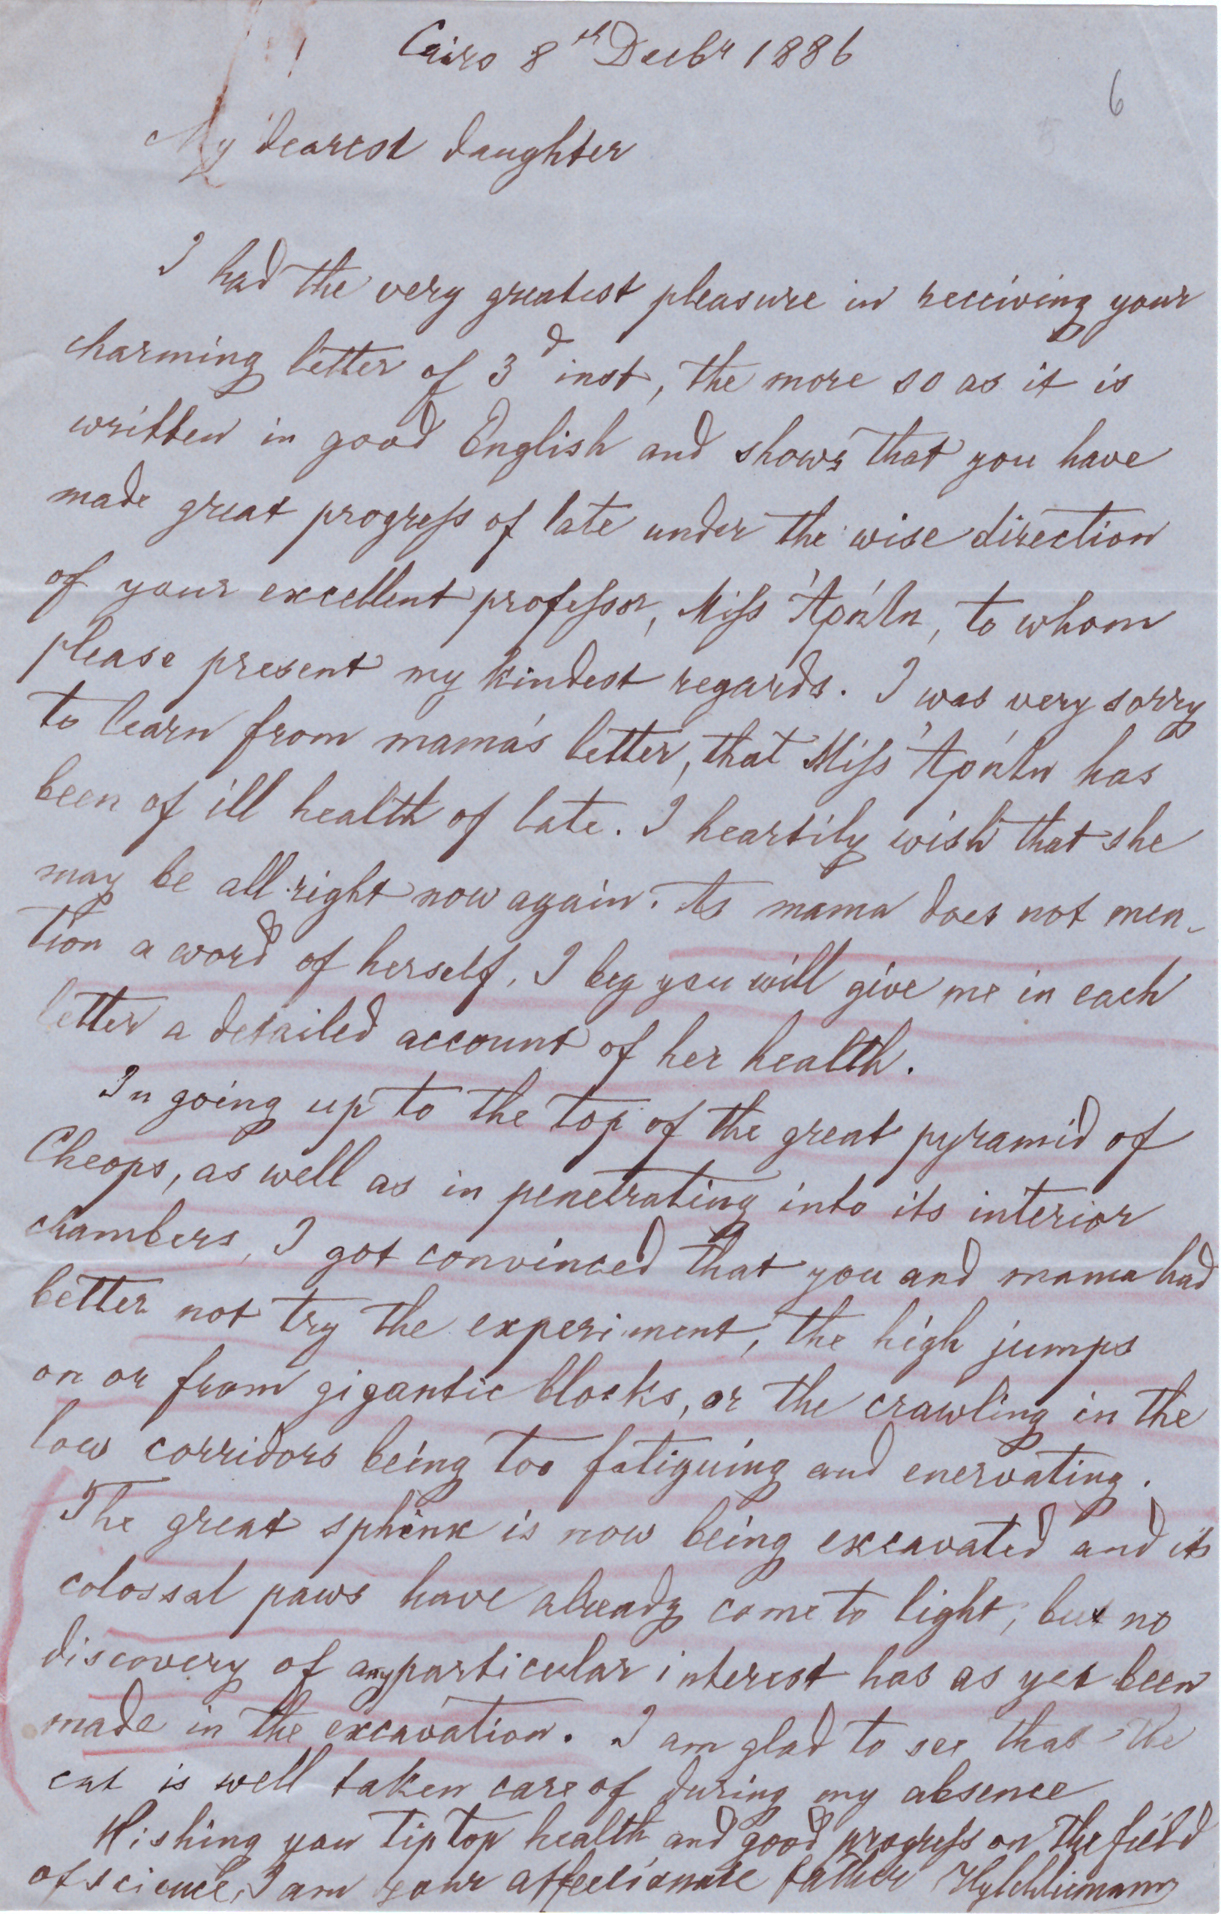 Cairo 8th Decbr 1886
6
My dearest daughter
I had the very greatest pleasure in receiving your
charming letter of 3d inst, the more so as it is
written in good English and shows that you have
made great progress of late under the wise direction
of your excellent professor, Miss to whom
please present my kindest regards. I was very sorry
to learn from mama's letter, that Miss has
been of ill health of late. I heartily wish that she
may be all right now again. As mama does not men-
tion a word of herself, I beg you will give me in each
letter a detailed account of her health.
In going up to the top of the great pyramid of
Cheops, as well as in penetrating into its interior
chambers, I got convinced that you and mama had
better not try the experiment, the high jumps
on or from gigantic blocks, or the crawling in the
low corridors being too fatiguing and enervating.
The great sphinx is now being excavated and its
colossal paws have already come to light, but no
discovery of any particular interest has as yet been
made in the excavation. I am glad to see that the
cat is well taken care of during my absence
Wishing you tiptop health and good progress on the field
of science, I am your affectionate father HySchliemann